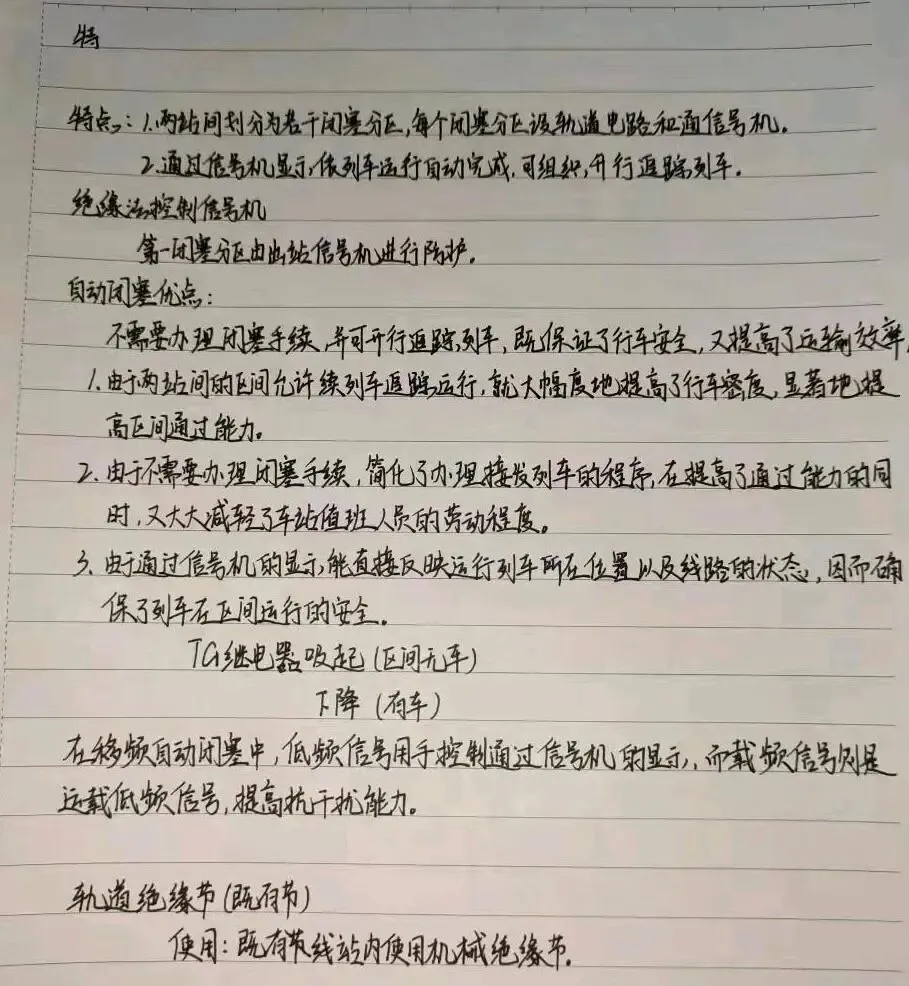 特
特点：1.两站间划分为若干闭塞分区,每个闭塞分区设轨道电路和通信号机。
2.通过信号机显示,依列车运行自动完成,可组织,开行追踪列车。
绝缘法控制信号机
第一闭塞分区由出站信号机进行防护。
自动闭塞优点：
不需要办理闭塞手续,并可开行追踪列车,既保证了行车安全,又提高了运输效率,
1.由于两站间的区间允许续列车追踪运行,就大幅度地提高了行车密度,显著地提
高区间通过能力。
2.由于不需要办理闭塞手续,简化了办理接发列车的程序,在提高了通过能力的同
时,又大大减轻了车站值班人员的劳动程度。
3.由于通过信号机的显示,能直接反映运行列车所在位置以及线路的状态,因而确
保了列车在区间运行的安全。
TG继电器吸起(区间无车)
下降(有车)
在移频自动闭塞中,低频信号用于控制通过信号机的显示,而载频信号则是
运载低频信号,提高抗干扰能力。
轨道绝缘节(既有节)
使用：既有节线站内使用机械绝缘节。